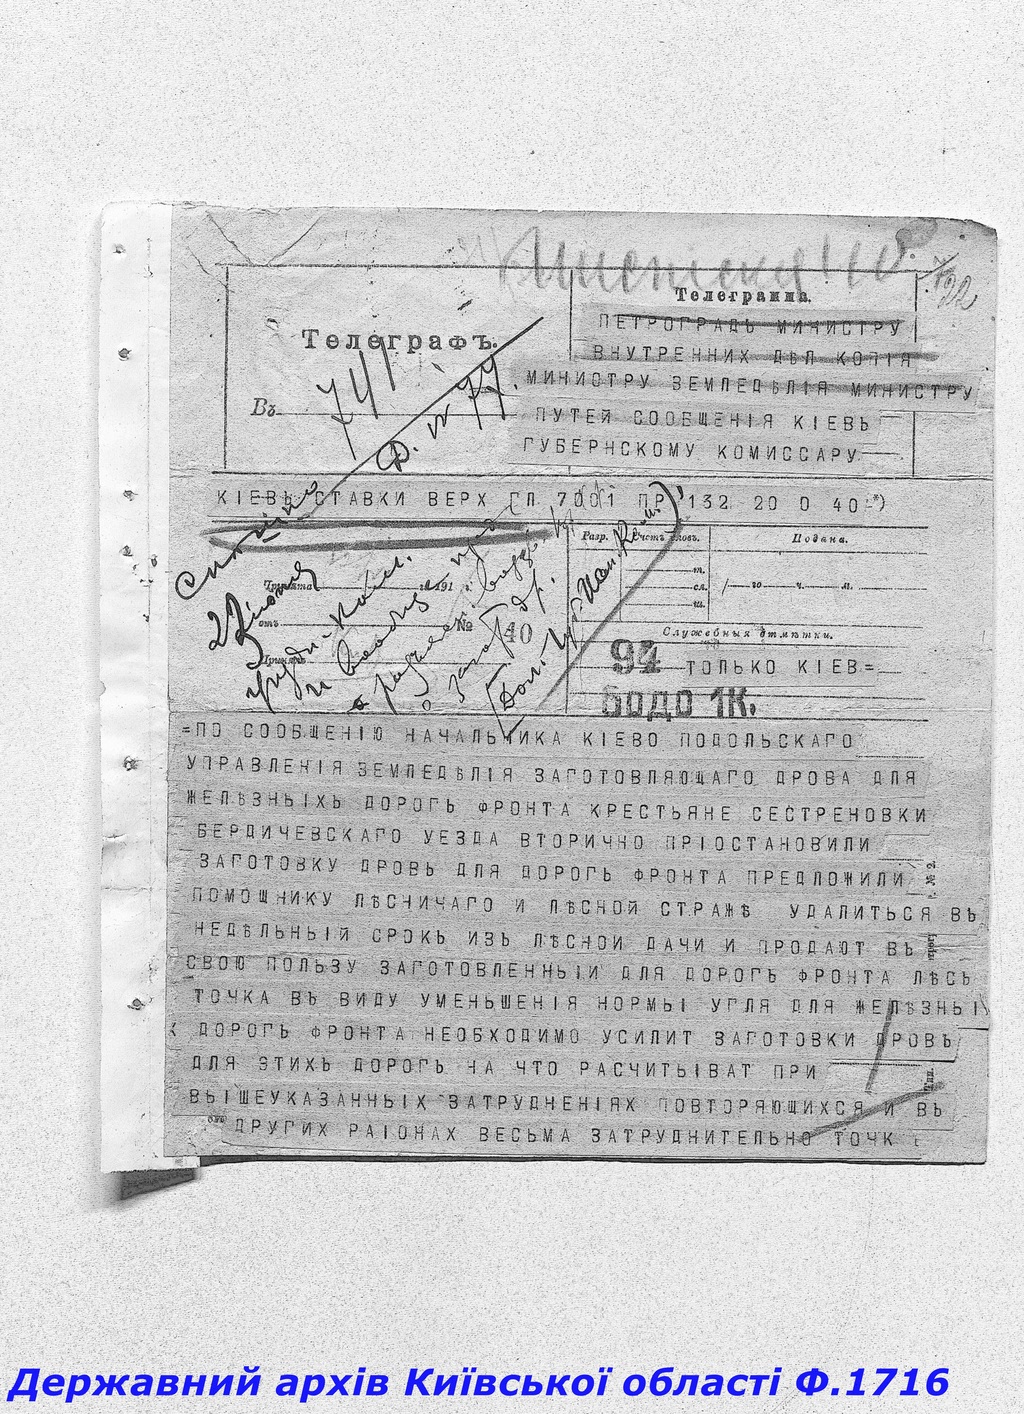 Телеграфъ.
741
Въ
Д. № 77.
Телеграмма.
122
ПЕТРОГРАДЬ МИНИСТРУ
ВНУТРЕННИХ ДѢЛ КОПІЯ
МИНИСТРУ ЗЕМЛЕДѢЛІЯ МИНИСТРУ
ПУТЕЙ СООБЩЕНІЯ КІЕВЬ
ГУБЕРНСКОМУ КОМИССАРУ
КІЕВЬ СТАВКИ ВЕРХ ГЛ 7001 ПР 132 20 0 40
Разр. Счетъ словъ. Подана.
Принята 191 г.
23 июня
отъ № 40
Принялъ
т.
сл. го ч. м.
ш.
Служебныя отмѣтки.
94 ТОЛЬКО КІЕВ=
БОДО 1К.
=ПО СООБЩЕНІЮ НАЧАЛЬНИКА КІЕВО ПОДОЛЬСКАГО
УПРАВЛЕНІЯ ЗЕМЛЕДѢЛІЯ ЗАГОТОВЛЯЮЩАГО ДРОВА ДЛЯ
ЖЕЛѢЗНЫХЬ ДОРОГЬ ФРОНТА КРЕСТЬЯНЕ СЕСТРЕНОВКИ
БЕРДИЧЕВСКАГО УЕЗДА ВТОРИЧНО ПРІОСТАНОВИЛИ
ЗАГОТОВКУ ДРОВЬ ДЛЯ ДОРОГЬ ФРОНТА ПРЕДЛОЖИЛИ
ПОМОЩНИКУ ЛѢСНИЧАГО И ЛѢСНОЙ СТРАЖѢ УДАЛИТЬСЯ ВЬ
НЕДѢЛЬНЫЙ СРОКЬ ИЗЬ ЛѢСНОЙ ДАЧИ И ПРОДАЮТ ВЬ
СВОЮ ПОЛЬЗУ ЗАГОТОВЛЕННЫЙ ДЛЯ ДОРОГЬ ФРОНТА ЛѢСЬ
ТОЧКА ВЬ ВИДУ УМЕНЬШЕНІЯ НОРМЫ УГЛЯ ДЛЯ ЖЕЛѢЗНЫ
Х ДОРОГЬ ФРОНТА НЕОБХОДИМО УСИЛИТ ЗАГОТОВКИ ДРОВЬ
ДЛЯ ЭТИХЬ ДОРОГЬ НА ЧТО РАСЧИТЫВАТ ПРИ
ВЫШЕУКАЗАННЫХ ЗАТРУДНЕНІЯХ ПОВТОРЯЮЩИХСЯ И ВЬ
ДРУГИХ РАІОНАХ ВЕСЬМА ЗАТРУДНИТЕЛЬНО ТОЧК
Державний архів Київської області Ф.1716